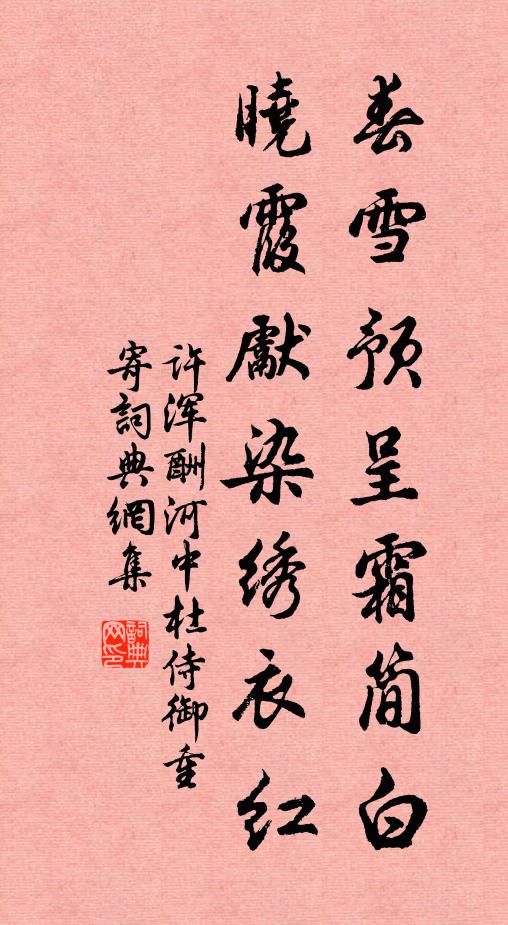 春雪预呈霜简白
曉霞獻染绣衣红
许浑酬河中杜侍御重
寄詞典網集
詞典网印